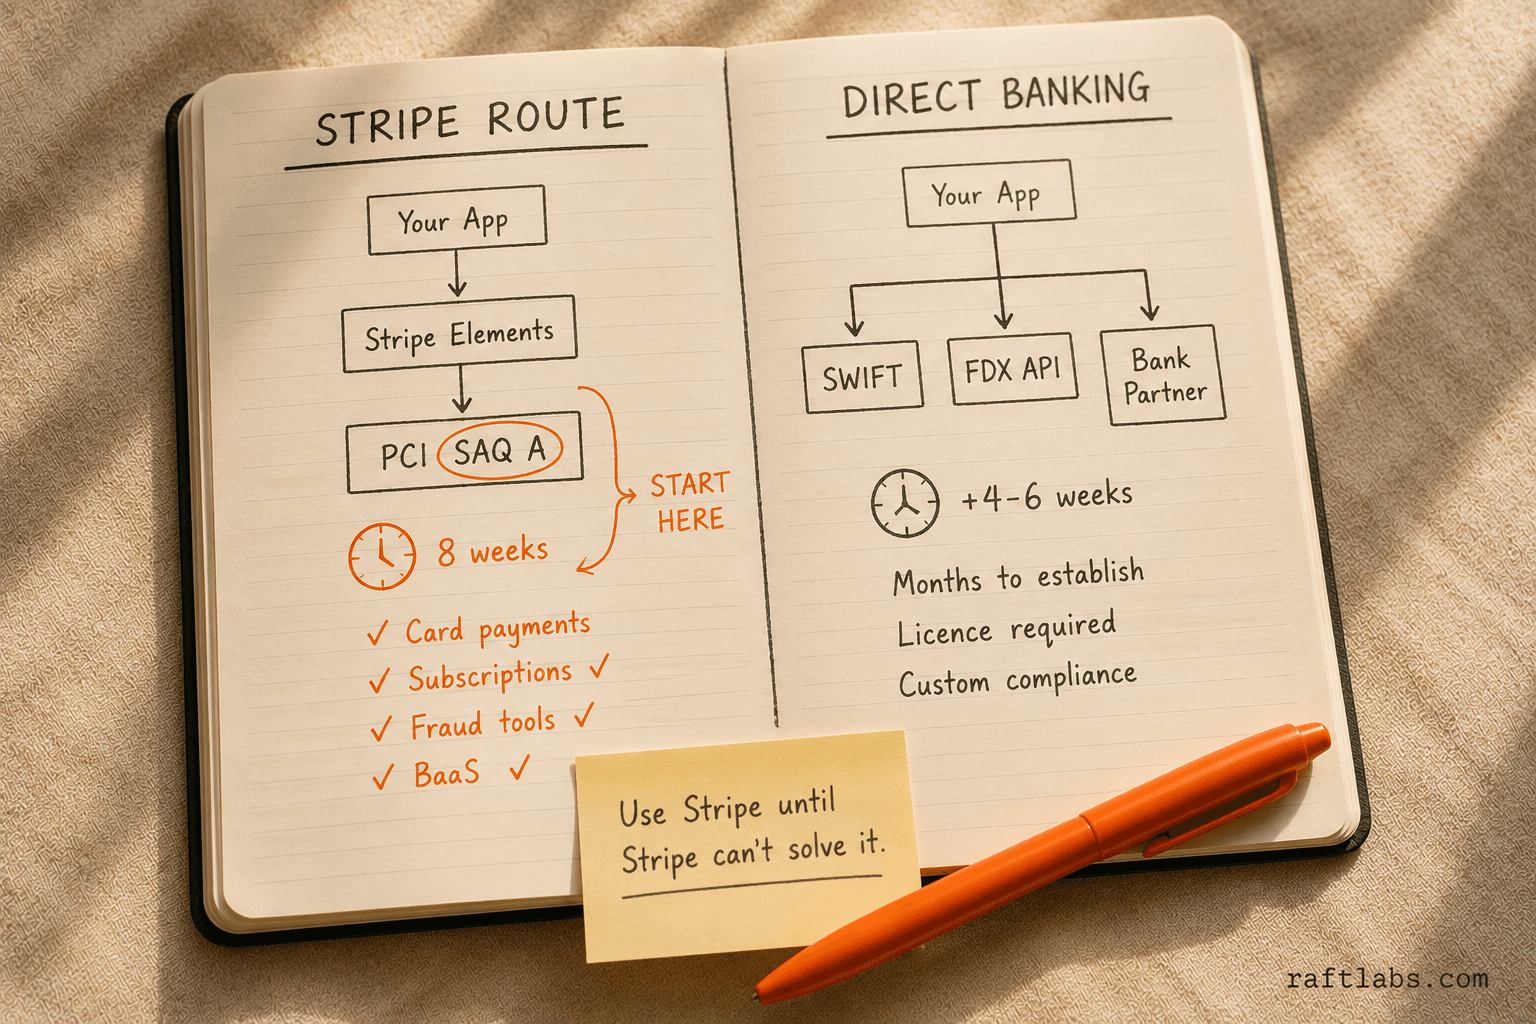 STRIPE ROUTE
Your App
Stripe Elements
PCI SAQ A
START
HERE
8 weeks
✓ Card payments
✓ Subscriptions ✓
✓ Fraud tools ✓
✓ BaaS ✓
DIRECT BANKING
Your App
SWIFT
FDX API
Bank
Partner
+4-6 weeks
Months to establish
Licence required
Custom compliance
Use Stripe until
Stripe can't solve it.
raftlabs.com